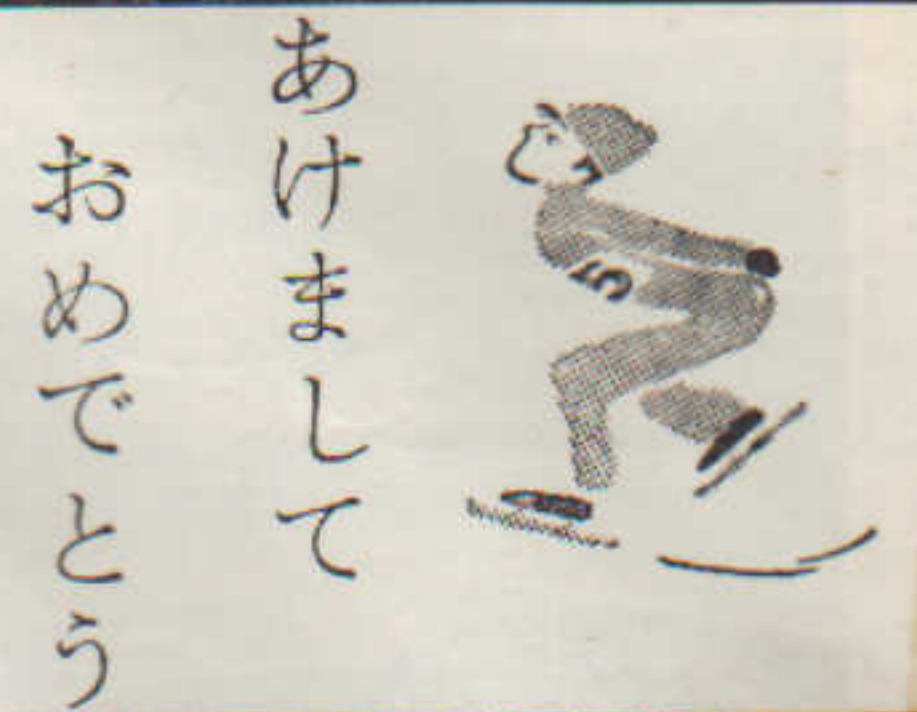 あけまして
おめでとう
5